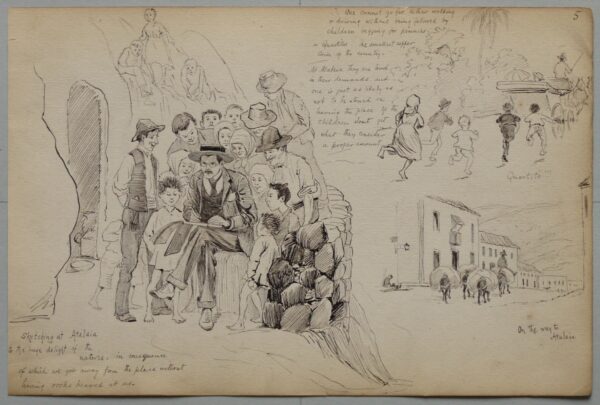 5
One cannot go far either walking
or driving without being followed by
children begging for pennies,
or Quartitos the smallest copper
coins of the country.
At Atalaia they are loud
in their demands and
one is just as likely as
not to be stoned on
leaving the place if the
children don't get
what they consider
a proper amount
Quartito!!!
On the way to
Atalaia
Sketching at Atalaia
to the huge delight of the
natives. in consequence
of which we got away from the place without
having rocks heaved at us.